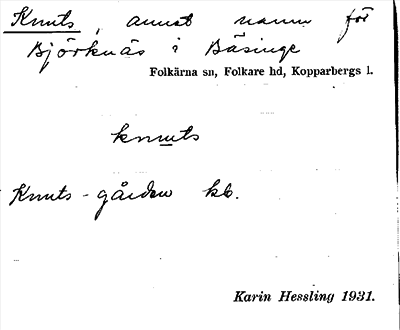 Knuts, annat namn för
Björknäs i Bäsinge
Folkärna sn, Folkare hd, Kopparbergs l.
knuts
Knuts-gården kb.
Karin Hessling 1931.